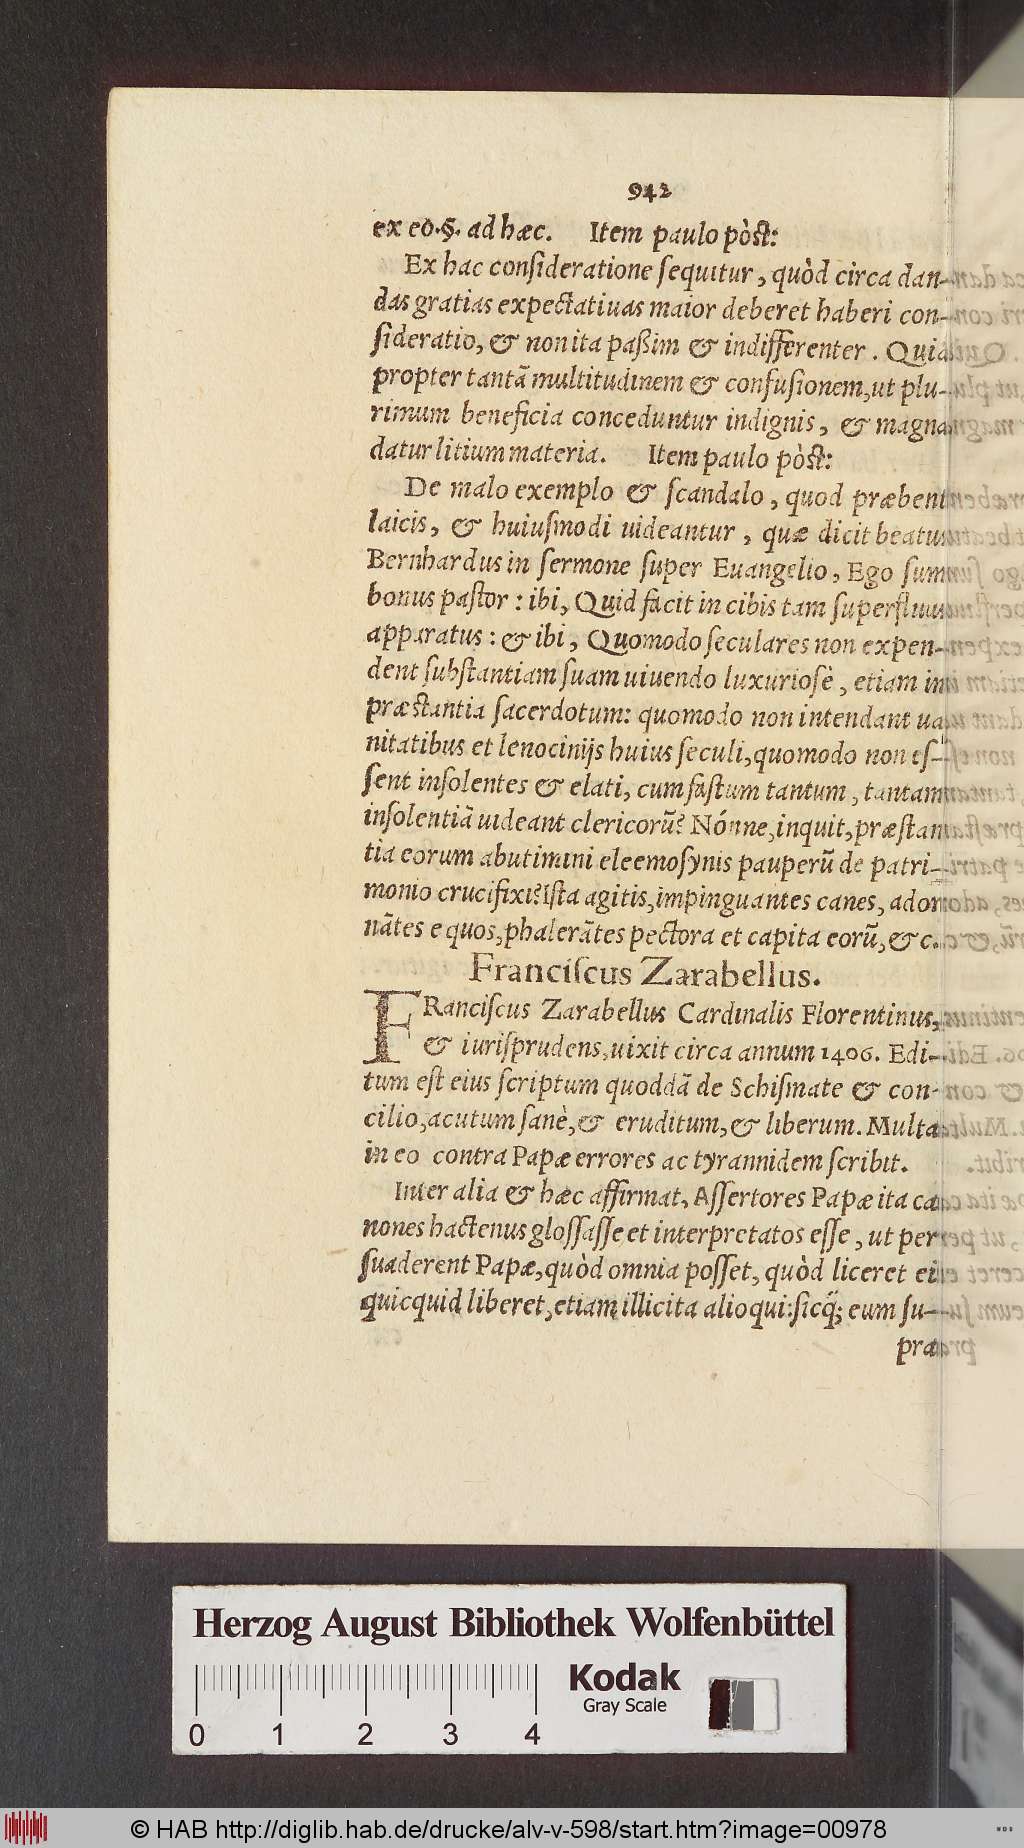 942
ex eo.§. ad hæc. Item paulo pòst:
Ex hac consideratione sequitur, quòd circa dan-
das gratias expectatiuas maior deberet haberi con-
sideratio, & non ita paßim & indifferenter. Quia
propter tantā multitudinem & confusionem, ut plu-
rimum beneficia conceduntur indignis, & magna
datur litium materia. Item paulo pòst:
De malo exemplo & scandalo, quod præbent
laicis, & huiusmodi uideantur, quæ dicit beatus
Bernhardus in sermone super Euangelio, Ego sum
bonus pastor: ibi, Quid facit in cibis tam superfluus
apparatus: & ibi, Quomodo seculares non expen-
dent substantiam suam uiuendo luxuriosè, etiam in
præstantia sacerdotum: quomodo non intendant ua
nitatibus et lenocinijs huius seculi, quomodo non es-
sent insolentes & elati, cum fastum tantum, tantam
insolentiā uideant clericorū? Nónne, inquit, præstan
tia eorum abutimini eleemosynis pauperū de patri-
monio crucifixi? Ista agitis, impinguantes canes, ador
nātes equos, phalerātes pectora et capita eorū, &c.
Franciscus Zarabellus.
FRanciscus Zarabellus Cardinalis Florentinus,
& iurisprudens, uixit circa annum 1406. Edi-
tum est eius scriptum quoddā de Schismate & con-
cilio, acutum sanè, & eruditum, & liberum. Multa
in eo contra Papæ errores ac tyrannidem scribit.
Inter alia & hæc affirmat, Assertores Papæ ita ca
nones hactenus glossasse et interpretatos esse, ut per
suaderent Papæ, quòd omnia posset, quòd liceret ei
quicquid liberet, etiam illicita alioqui: sicq́; eum su-
pra
Herzog August Bibliothek Wolfenbüttel
Kodak
Gray Scale
0 1 2 3 4
© HAB http://diglib.hab.de/drucke/alv-v-598/start.htm?image=00978